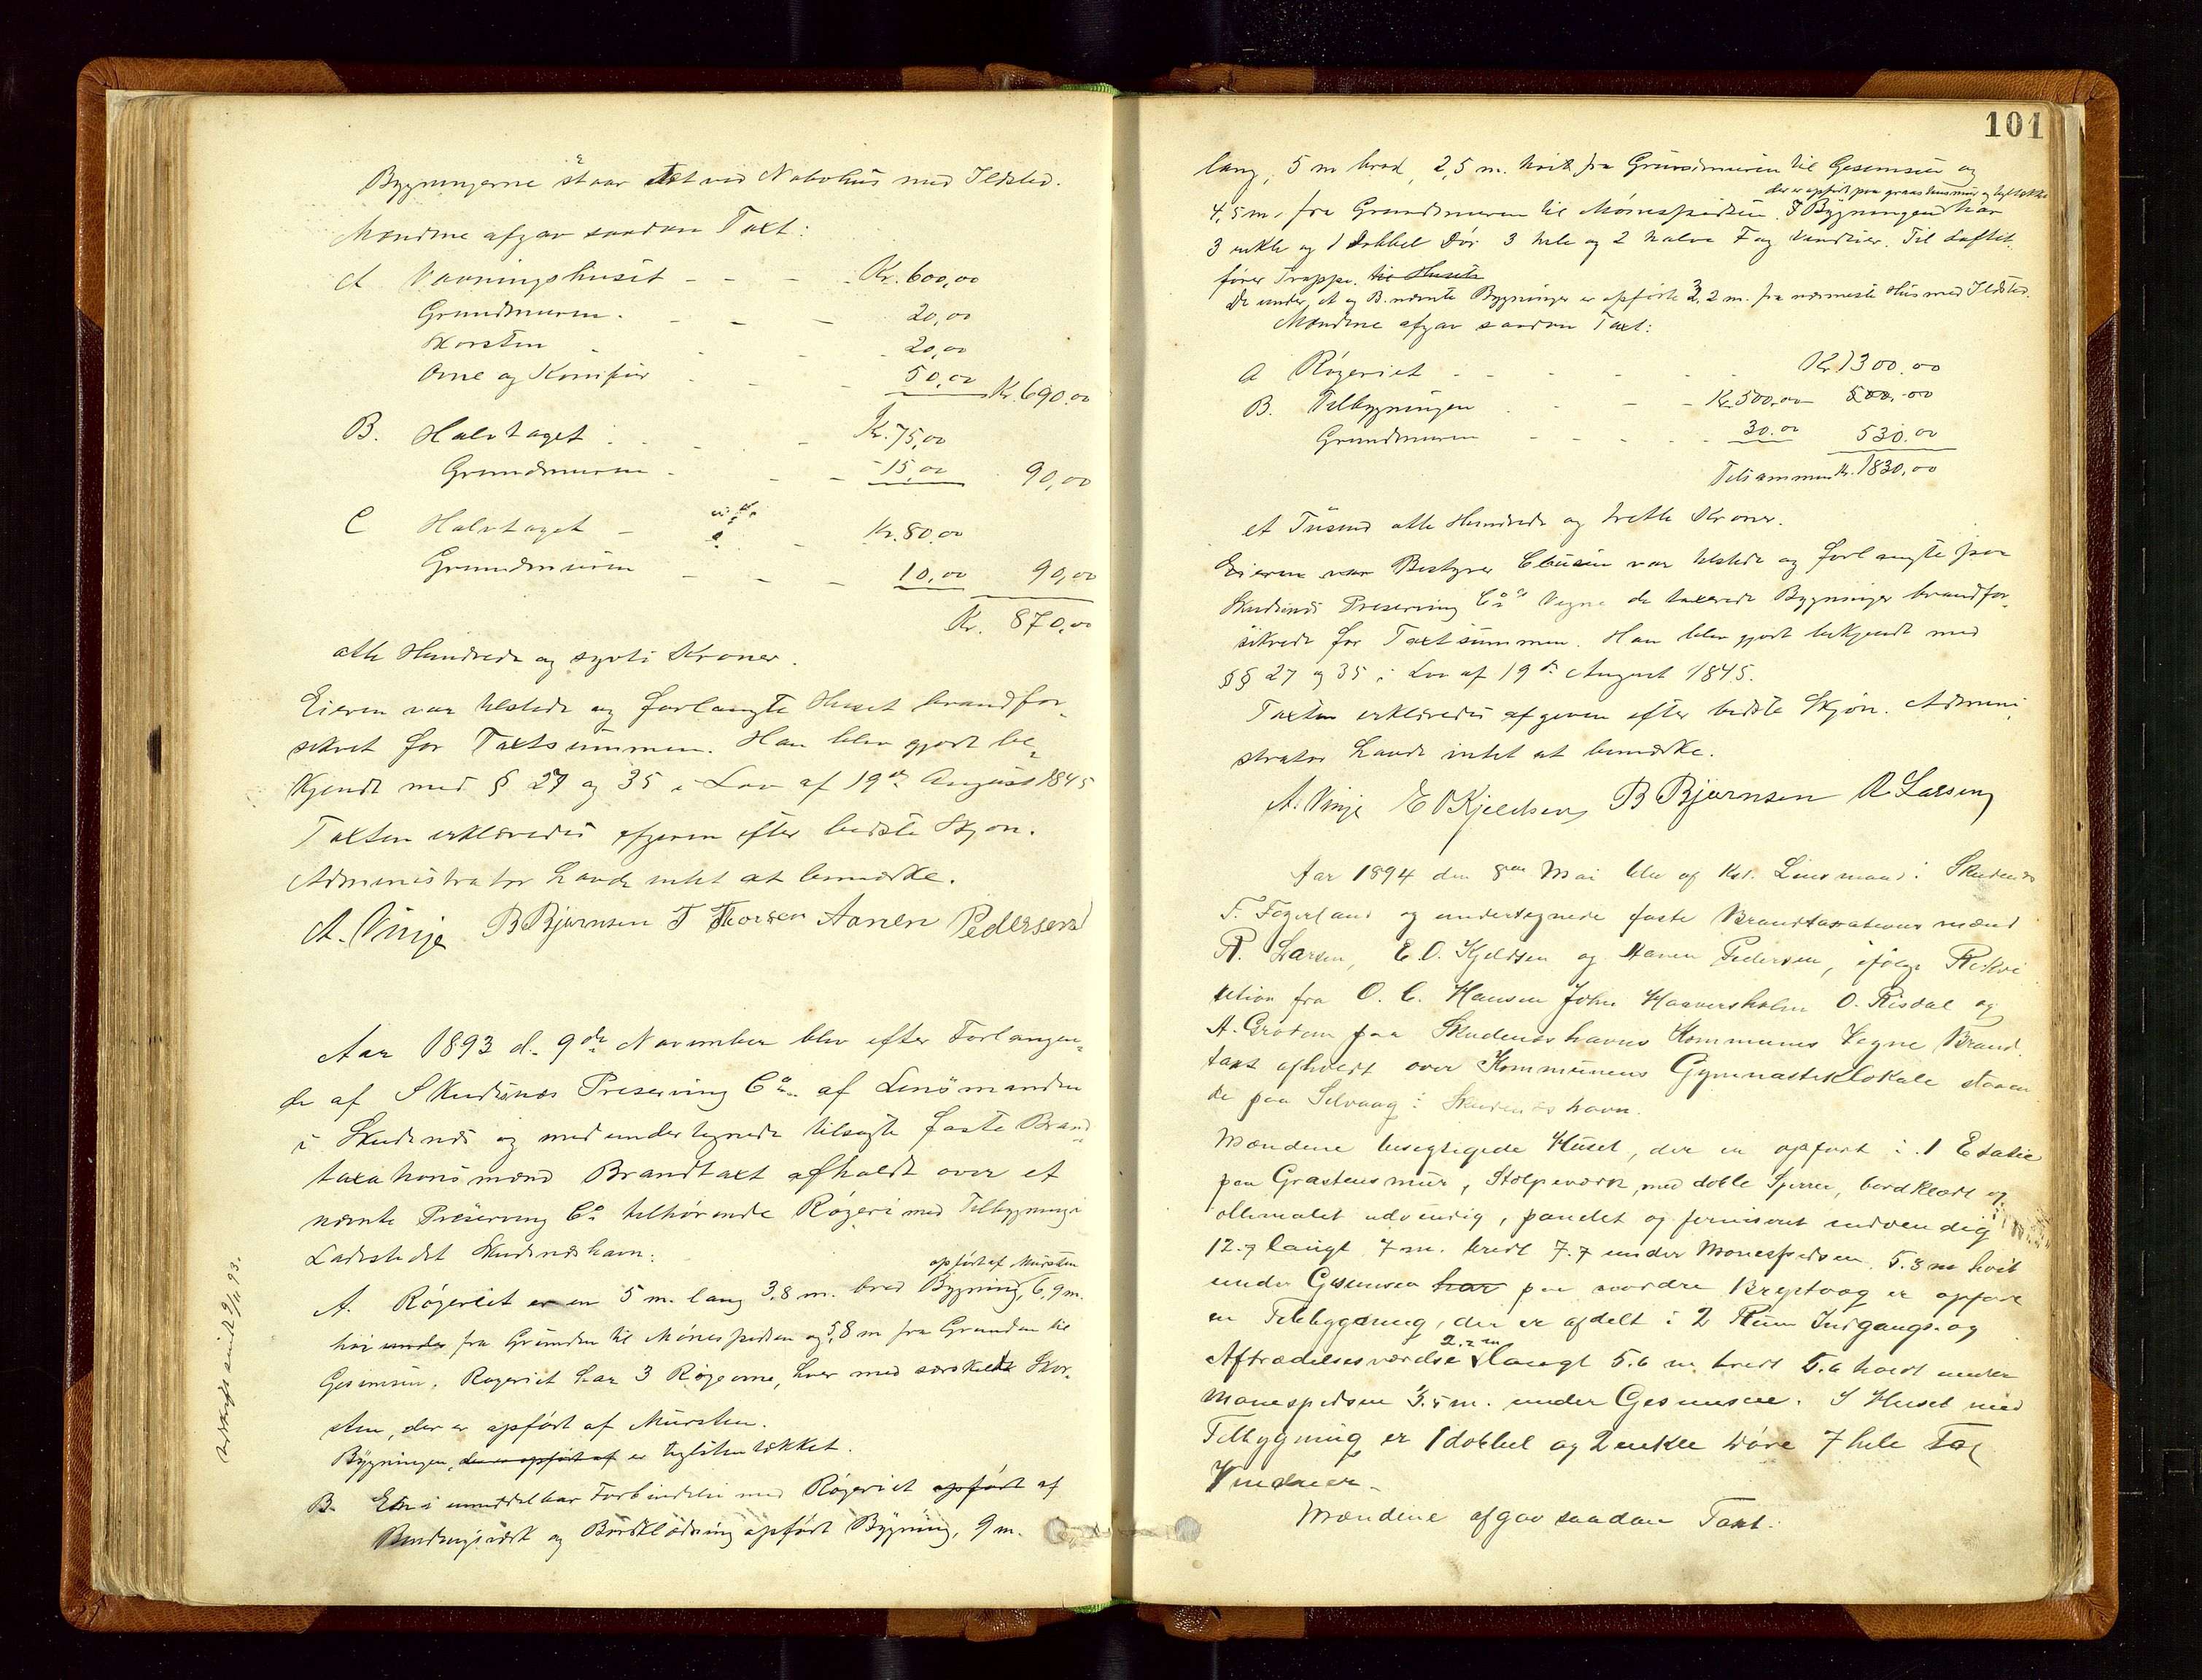 Bygningerne staar tæt ved Nabohus med Ildsted.
Mændene afgav saadan Taxt:
A Vaaningshuset - - - Kr. 600,00
Grundmuren - - - 20,00
Skorsten - - - 20,00
Ovne og Komfur - - - 50,00 Kr. 690.00
B. Halvtaget - - - Kr. 75,00
Grundmuren - - - 15,00 90,00
C Halvtaget - - Kr. 80.00
Grundmuren - - - 10,00 90,00
Kr. 870,00
otte Hundrede og sytti Kroner.
Eieren var tilstede og forlangte Huset brandfor-
sikret for Taxtsummen. Han blev gjort be-
kjendt med § 27 og 35 i Lov af 19de August 1845
Taxten erklæredes afgiven efter bedste Skjøn.
Administrator havde intet at bemærke.
A. Vinje B Bjørnsen T Thorsen Aanen Pedersen
Aar 1893 d. 9de November blev efter Forlangen-
de af Skudesnæs Preserving Co. af Lensmanden
i Skudesnæs og med undertegnede tilsagte faste Brand-
taxationsmænd Brandtaxt afholdt over et
nævnte Preserving Co tilhørende Røgeri med Tilbygning i
Ladestedet Skudesnæshavn:
opført af Mursten
A. Røgeriet er en 5 m. lang 3,8 m. bred Bygning, 6,9 m.
høi under fra Grunden til Mønespidsen og 5,8 m fra Grunden til
Gesimsen. Røgeriet har 3 Røgovne, hver med særskilt Skor-
sten, der er opført af Mursten.
Bygningen, der er opført af er teglstentækket.
B. En i umiddelbar Forbindelse med Røgeriet opført af
Bindingsværk og Bordklædning opført Bygning, 9 m.
Udskrift sendt 9/11 93.
101
lang, 5 m bred, 2,5 m. høit fra Grundmuren til Gesimsen og
der er opført paa graastensmur og tegltækket
4,5 m. fra Grundmuren til Mønespidsen. I Bygningen har
3 enkle og 1 dobbel Dør 3 hele og 2 halve Fag Vinduer. Til Loftet
fører Trappe. til Huset
De under A og B. nævnte Bygninger er opførte 3,2 m. fra nærmeste Hus med Ildsted.
Mændene afgav saadan Taxt:
A Røgeriet - - - - Kr 1300.00
B. Tilbygningen - - - Kr. 500,00 500,00
Grundmuren - - - - 30.00 530.00
Tilsammen Kr. 1830,00
et Tusend otte Hundrede og trette Kroner.
Eieren var Bestyrer Clausen var tilstede og forlangte paa
Skudesnæs Preserving Co's Vegne de taxerede Bygninger brandfor-
sikrede for Taxtsummen. Han blev gjort bekjendt med
§§ 27 og 35 i Lov af 19de August 1845.
Taxten erklæredes afgiven efter bedste Skjøn. Admini-
strator havde intet at bemærke.
A. Vinje E O Kjeldsen B Bjørnsen R. Larsen
Aar 1894 den 8de Mai blev af Kst. Lensmand i Skudesnæs
T. Fagerland og undertegnede faste Brandtaxationsmænd
R. Larsen, E. O. Kjeldsen og Aanen Pedersen, ifølge Rekvi
sition fra O. C. Hansen John Waaversholm O. Risdal og
A. Grotem paa Skudesnæshavns Kommunes Vegne Brand-
taxt afholdt over Kommunens Gymnastiklokale staaen
de paa Selvaag i Skudesnæshavn.
Mændene besigtigede Huset, der er opført i 1 Etatie
paa Graastensmur, Stolpeværk, med doble Sperrer, bordklædt og
oliemalet udvendig, panelet og ferniseret indvendig
12.7 langt 7 m. bredt 7.7 under Mønespidsen. 5.3 m høit
under Gesimsen har paa nordre Brystvæg er opført
en Tilbygning, der er afdelt i 2 Rum Indgangs- og
2.2 m
Aftrædelsesværelse langt 5.6 m. bredt 5.6 høidt under
Mønespidsen 3.5 m. under Gesimsen. I Huset med
Tilbygning er 1 dobbel og 2 enkle Døre 7 hele Fag
Vinduer.
Mændene afgav saadan Taxt: